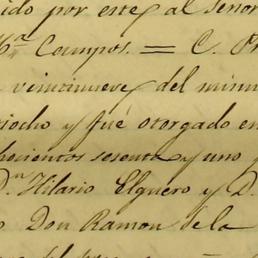 ido por este al Señor
Campos. = C.
veintinueve del mismo
iocho y fué otorgado en
hocientos sesenta y uno
Dn. Hilario Elguero y D.
Don Ramon de la